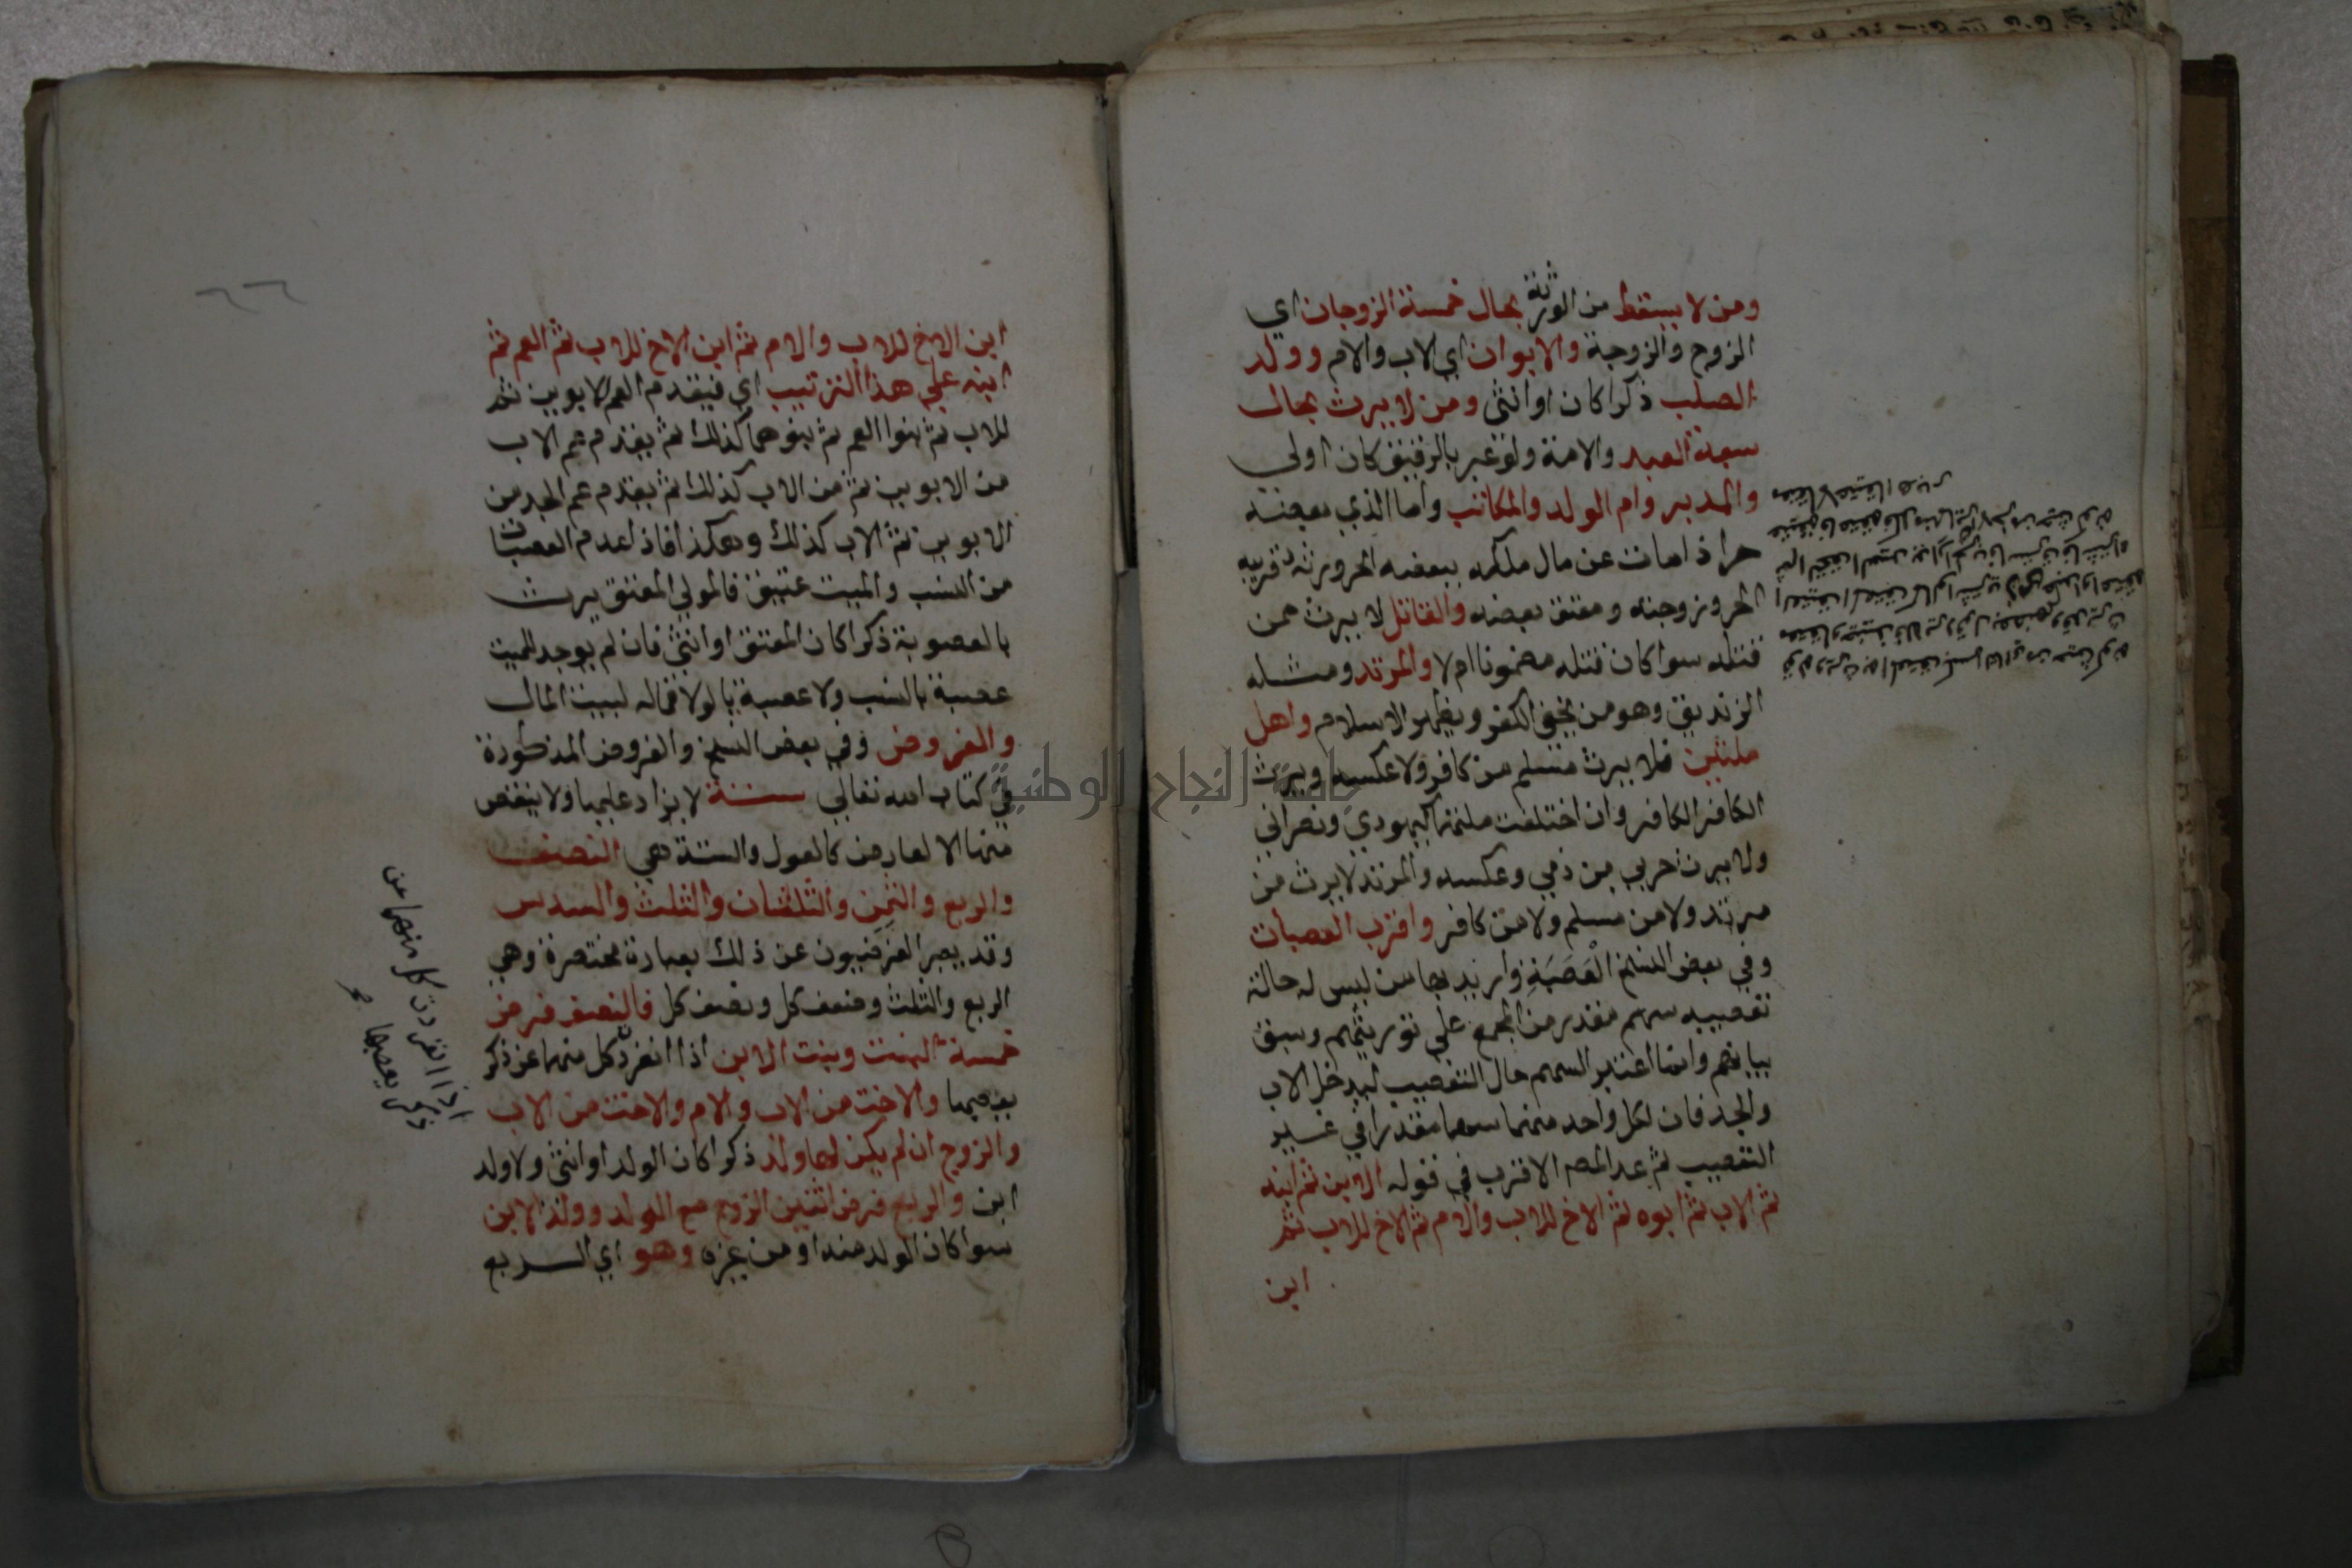 ومن لا يسقط من الورثة بحال خمسة الزوجان اي
الزوج والزوجة والابوان اي الاب والام وولد
الصلب ذكرا كان او انثى ومن لا يرث بحال
سبعة العبد والامة ولو عبر بالرقيق كان اولي
والمدبر وام الولد والمكاتب واما الذي بعضه
حر اذا مات عن مال ملكه ببعضه الحر ورثه قريبه
الحر وزوجته ومعتق بعضه والقاتل لا يرث ممن
قتله سوا كان قتله مضمونا ام لا والمرتد ومثله
الزنديق وهو من يخفي الكفر ويظهر الاسلام واهل
ملتين فلا يرث مسلم من كافر ولا عكسه ويرث
الكافر الكافر وان اختلفت ملتهما كيهودي ونصراني
ولا يرث حربي من ذمي وعكسه والمرتد لا يرث من
مرتد ولا من مسلم ولا من كافر واقرب العصبات
وفي بعض النسخ العصبة واريد بها من ليس له حالة
تعصيبه سهم مقدر من المجمع علي توريثهم وسبق
بيانهم وانما اعتبر السهم حال التعصيب ليدخل الاب
والجد فان لكل واحد منهما سهما مقدرا في غير
التعصيب ثم عد المصـ الاقرب في قوله الابن ثم ابنه
ثم الاب ثم ابوه ثم الاخ للاب والام ثم الاخ للاب ثم
ابن
جامعة النجاح الوطنية
٦٦
ابن الاخ للاب والام ثم ابن الاخ للاب ثم العم ثم
ابنه علي هذا الترتيب اي فيقدم العم لابوين ثم
للاب ثم بنوا العم ثم بنوهما كذلك ثم يقدم عم الاب
من الابوين ثم من الاب كذلك ثم يقدم عم الجد من
الابوين ثم الاب كذلك وهكذا فاذا عدم العصبات
من النسب والميت عتيق فالمولي المعتق يرث
بالعصوبة ذكرا كان المعتق او انثى فان لم يوجد للميت
عصبة بالنسب ولا عصبة بالولا فماله لبيت المال
والفروض وفي بعض النسخ والفروض المذكورة
في كتاب الله تعالي ستة لا يزاد عليها ولا ينقص
منها الا لعارض كالعول والستة هي النصف
والربع والثمن والثلثان والثلث والسدس
وقد يعبر الفرضيون عن ذلك بعبارة مختصرة وهي
الربع والثلث وضعف كل ونصف كل فالنصف فرض
خمسة البنت وبنت الابن اذا انفرد كل منهما عن ذكر
يعصبها والاخت من الاب والام والاخت من الاب
والزوج ان لم يكن لها ولد ذكرا كان الولد او انثى ولا ولد
ابن والربع فرض اثنين الزوج مع الولد وولد الابن
سوا كان الولد منه او من غيره وهو اي الربع
اذا انفردت كل منهما عن
ذكر يعصبها